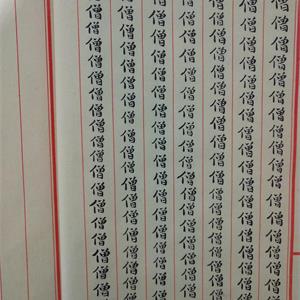 僧僧僧僧僧僧僧僧僧僧僧僧僧僧僧僧僧
僧僧僧僧僧僧僧僧僧僧僧僧僧僧僧僧僧
僧僧僧僧僧僧僧僧僧僧僧僧僧僧僧僧僧
僧僧僧僧僧僧僧僧僧僧僧僧僧僧僧僧僧
僧僧僧僧僧僧僧僧僧僧僧僧僧僧僧僧僧
僧僧僧僧僧僧僧僧僧僧僧僧僧僧僧僧僧
僧僧僧僧僧僧僧僧僧僧僧僧僧僧僧僧僧
僧僧僧僧僧僧僧僧僧僧僧僧僧僧僧僧僧